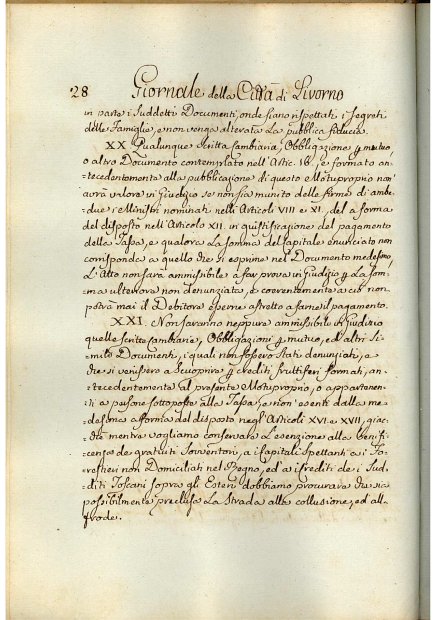 28 Giornale della Città di Livorno
in parte i Suddetti Documenti, onde siano rispettati i segreti
delle Famiglie, e non venga alterata la pubblica fiducia.
XX. Qualunque Scritta Cambiaria, Obbligazione p mutuo,
o altro Documento contemplato nell'Artic. 16. e formato an-
:tecedentemente alla pubblicazione di questo Motuproprio non
avrà valore in Giudizio se non sia munito delle firme di ambe-
:due i Ministri nominati nelli Articoli VIII e XI, del a forma
del disposto nell'Articolo XII. in giustificazione del pagamento
della Tassa, e qualora la somma del Capitale enunciato non
corrisponda a quello che si esprime nel Documento medesimo,
L'Atto non sarà ammissibile a far prova in Giudizio p la som-
:ma ulteriore non denunziata, e coerentemente a ciò non
potrà mai il Debitore esserne astretto a farne il pagamento.
XXI. Non saranno neppure ammissibili in Giudizio
quelle Scritte Cambiarie, Obbligazioni p mutuo, ed altri Si-
:mili Documenti, i quali non fossero stati denunziati, e
che si venissero a scuoprire p crediti fruttiferi formati, an-
:tecedentemente al presente Motuproprio, o appartenen-
:ti a persone sottoposte alla Tassa, e non esenti dalla me-
:desima a forma del disposto negl'Articoli XVI e XVII, giac-
:chè mentre vogliamo conservare l'esenzione alla benifi-
:cenza de gratuiti Sovventori, a i Capitali spettanti a i Fo-
:restieri non Domiciliati nel Regno, ed a i crediti de i Sud-
:diti Toscani sopra gli Esteri dobbiamo procurare che sia
possibilmente preclusa la strada alle collusione, ed alla
frode.